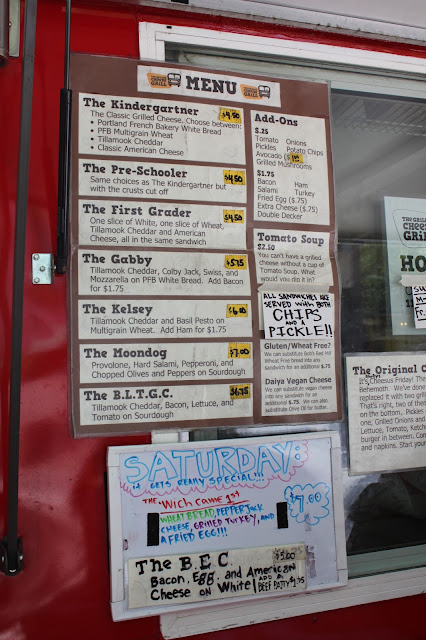 MENU
The Kindergartner $4.50
The Classic Grilled Cheese. Choose between:
• Portland French Bakery White Bread
• PFB Multigrain Wheat
• Tillamook Cheddar
• Classic American Cheese
The Pre-Schooler $4.50
Same choices as The Kindergartner but
with the crusts cut off
The First Grader $4.50
One slice of White, one slice of Wheat,
Tillamook Cheddar and American
Cheese, all in the same sandwich
The Gabby $5.75
Tillamook Cheddar, Colby Jack, Swiss, and
Mozzarella on PFB White Bread. Add Bacon
for $1.75
The Kelsey $6.00
Tillamook Cheddar and Basil Pesto on
Multigrain Wheat. Add Ham for $1.75
The Moondog $7.00
Provolone, Hard Salami, Pepperoni, and
Chopped Olives and Peppers on Sourdough
The B.L.T.G.C. $6.75
Tillamook Cheddar, Bacon, Lettuce, and
Tomato on Sourdough
Add-Ons
$.25
Tomato Onions
Pickles Potato Chips
Avocado ($1.00
Grilled Mushrooms
$1.75
Bacon Ham
Salami Turkey
Fried Egg ($.75)
Extra Cheese ($.75)
Double Decker
Tomato Soup
$2.50
You can't have a grilled
cheese without a cup of
Tomato Soup. What
would you dip it in?
ALL SANDWICHES ARE
SERVED WITH BOTH
CHIPS
AND A
PICKLE!!
Gluten/Wheat Free?
We can substitute Bob's Red Mill
Wheat Free bread into any
sandwich for an additional $.75
Daiya Vegan Cheese
We can substitute vegan
cheese into any sandwich
for an additional $.75. We can also
substitute Olive Oil for butter.
SATURDAY:
GETS REALLY SPECIAL!!!
THE "WICH CAME 1ST $7.00
WHEAT BREAD, PEPPER JACK
CHEESE, GRILLED TURKEY, AND
A FRIED EGG!!!
The B.E.C. $5.00
Bacon, Egg, and American
Cheese on White!
ADD A
BEEF PATTY $1.75
The Grilled
Cheese
Grill
HO
The Original C
It's Cheesus Friday! The
Behemoth. We've done
replaced it with two gril
That's right, two of the
on the bottom, Pickles
one, Grilled Onions and
Lettuce, Tomato, Ketch
burger in between. Con
and napkins. Start your